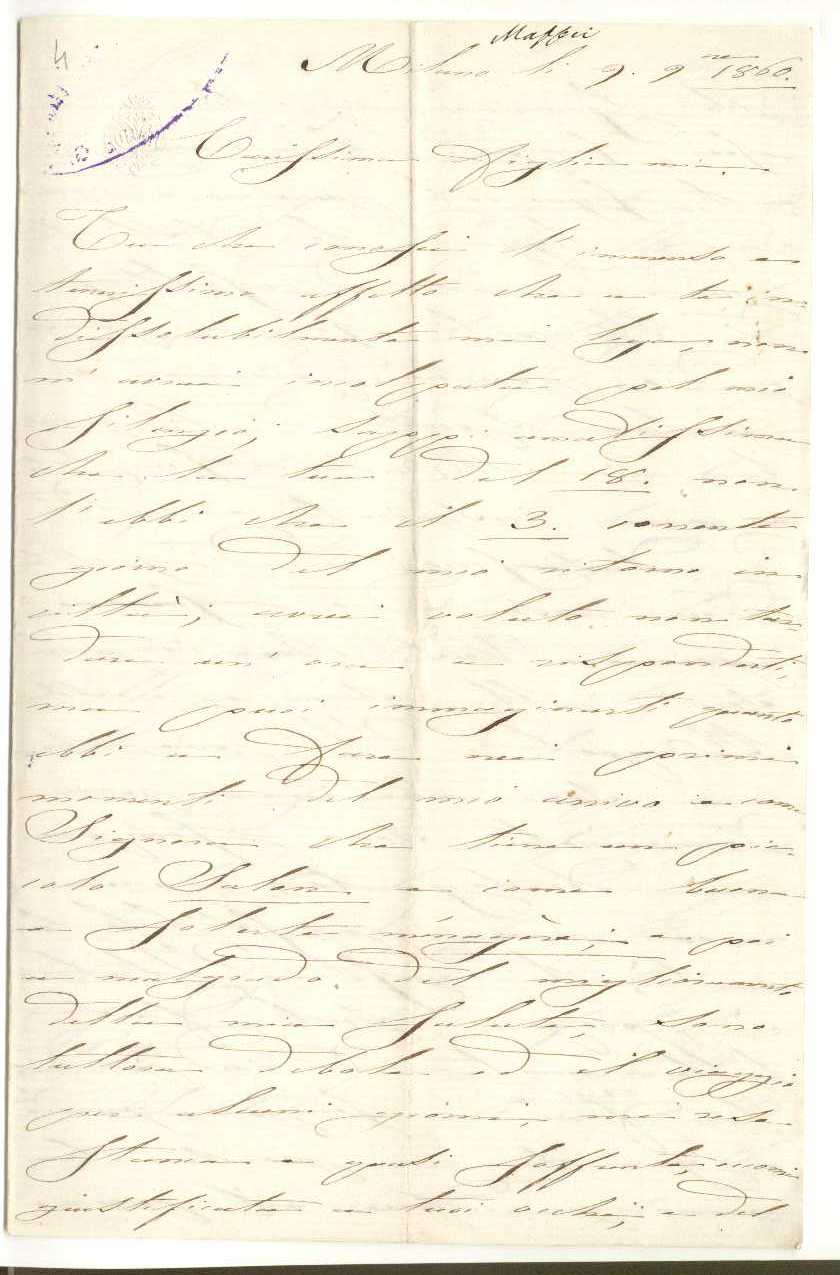 4
Maffei
Milano li 9. 9bre 1860.
Carissima Figlia mia.
Tu che conosci l'immenso e
tenerissimo affetto che a te in
dissolubilmente mi lega, non
m'avrai incolpata pel mio
silenzio; sappi amatissima
che la tua del 18. non
l'ebbi che il 3. corrente
giorno del mio ritorno in
città; avrei voluto non tar-
dare un'ora a risponderti,
ma puoi immaginarti quanto
ebbi a fare nei primi
momenti del mio arrivo e come
Signora che tiene un pic-
colo Salon e come buona
e solerte ménagère; e poi
a malgrado del miglioramento
della mia salute, sono
tuttora debole ed il viaggio
per alcuni giorni, mi rese
stanca e quasi soffrente, eccomi
giustificata a tuoi occhi, e del